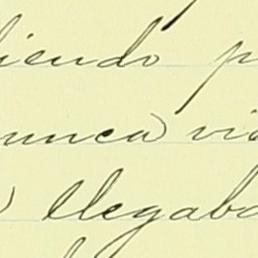 iendo p
nunca vi
llegaba